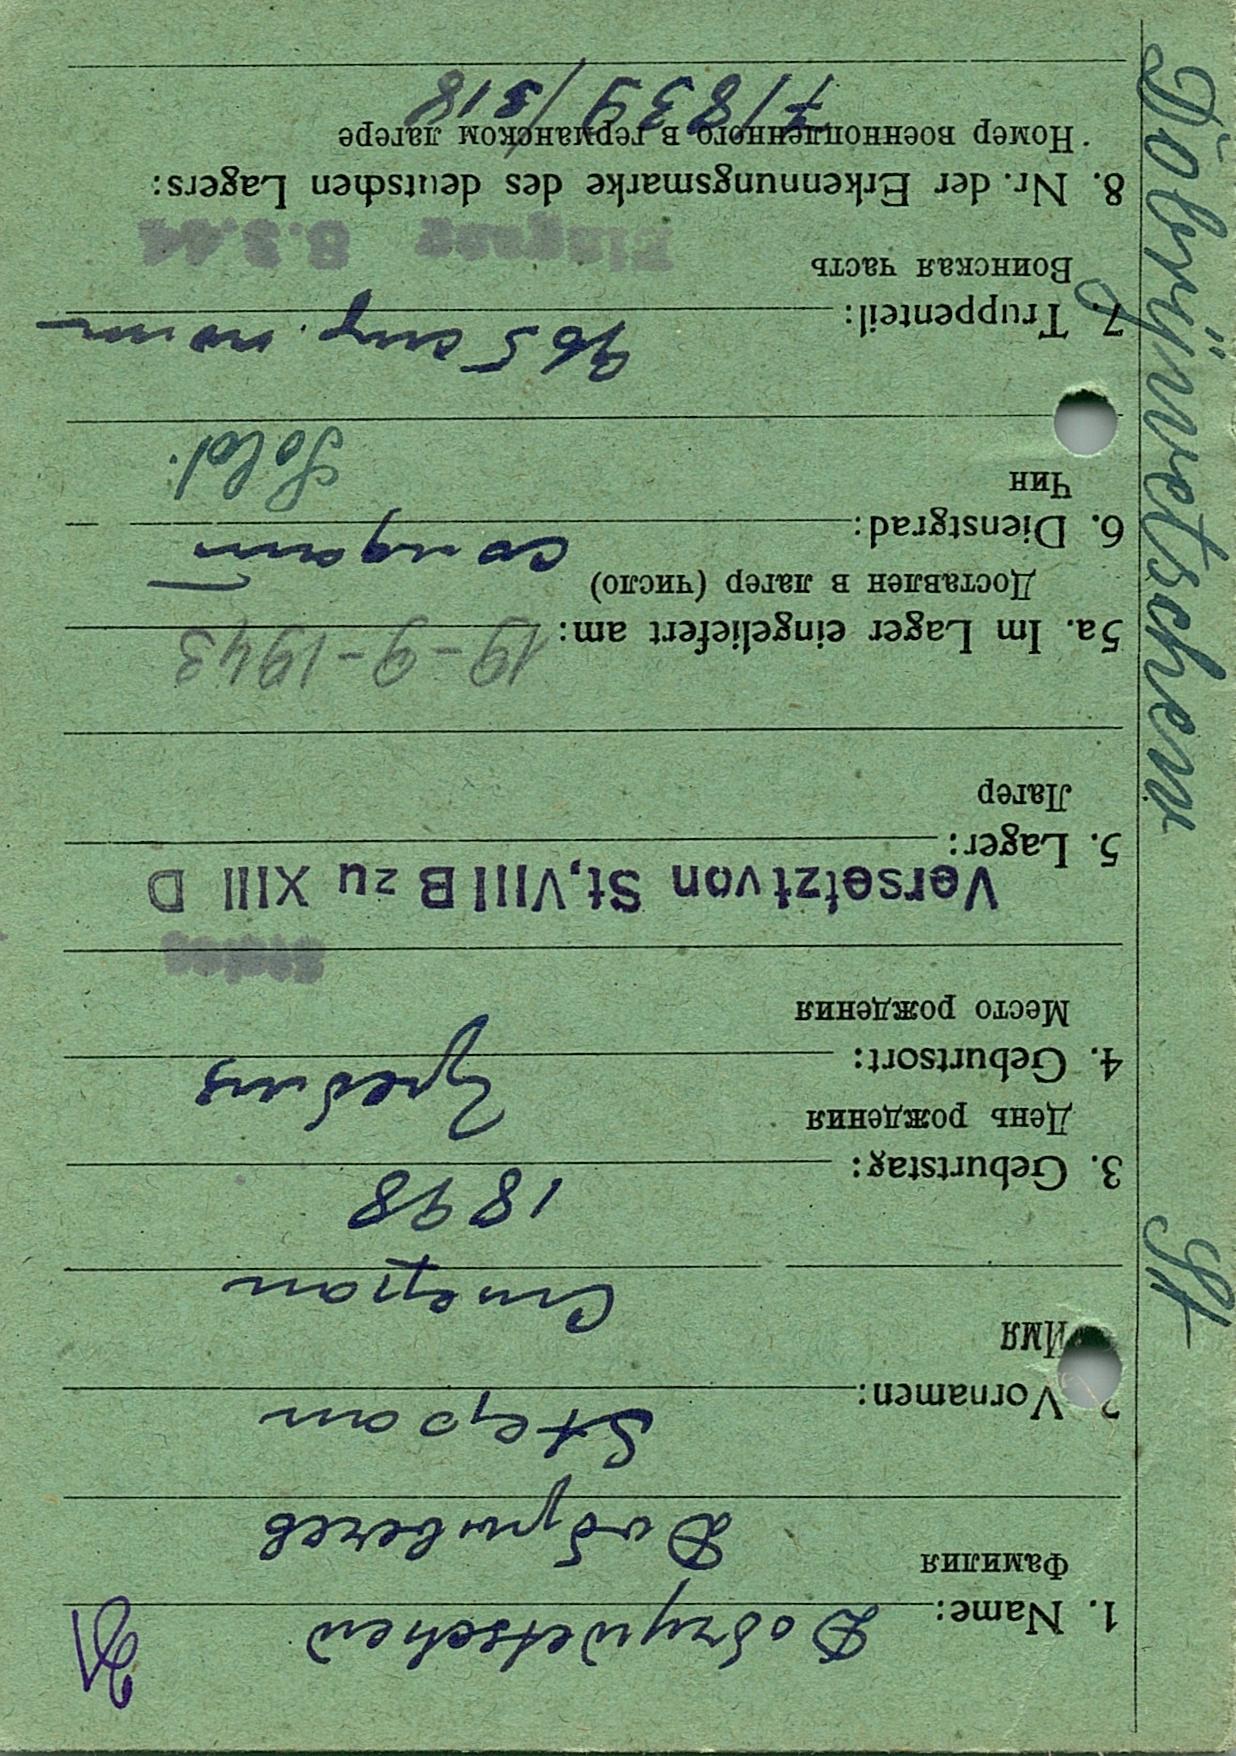 Dobrÿnvetschew St
1. Name: Dobrynwetschew
Фамилия
Добрывечев
2. Vornamen: Stepan
Имя
Степан
3. Geburtstag: 1898
День рождения
4. Geburtsort:
Место рождения
Stalag
Versetzt von St, VIII B zu XIII D
5. Lager:
Лагер
5a. Im Lager eingeliefert am: 19-9-1943
Доставлен в лагер (число)
6. Dienstgrad: солдат
Чин
Sold.
7. Truppenteil: 965 стр. полк
Воинская часть
Eingang 8.3.44
8. Nr. der Erkennungsmarke des deutschen Lagers:
Номер военнопленного в германском лагере
7/839/318